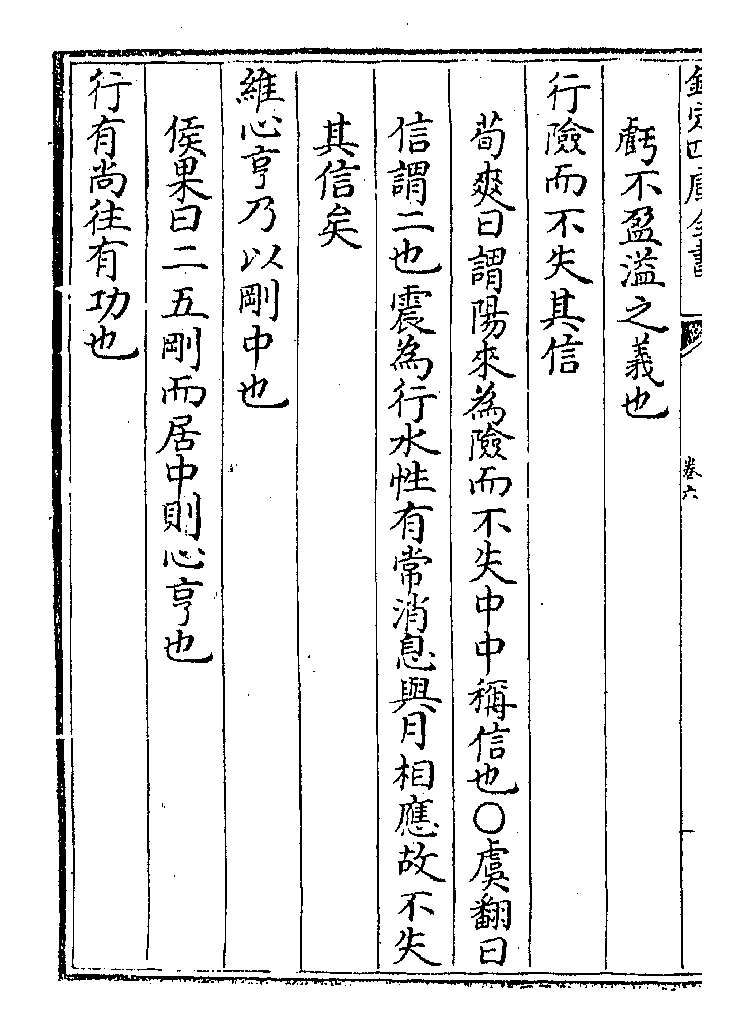 欽定四庫全書
卷六
虧不盈溢之義也
行險而不失其信
荀爽曰謂陽來為險而不失中中稱信也○虞翻曰
信謂二也震為行水性有常消息與月相應故不失
其信矣
維心亨乃以剛中也
侯果曰二五剛而居中則心亨也
行有尚往有功也